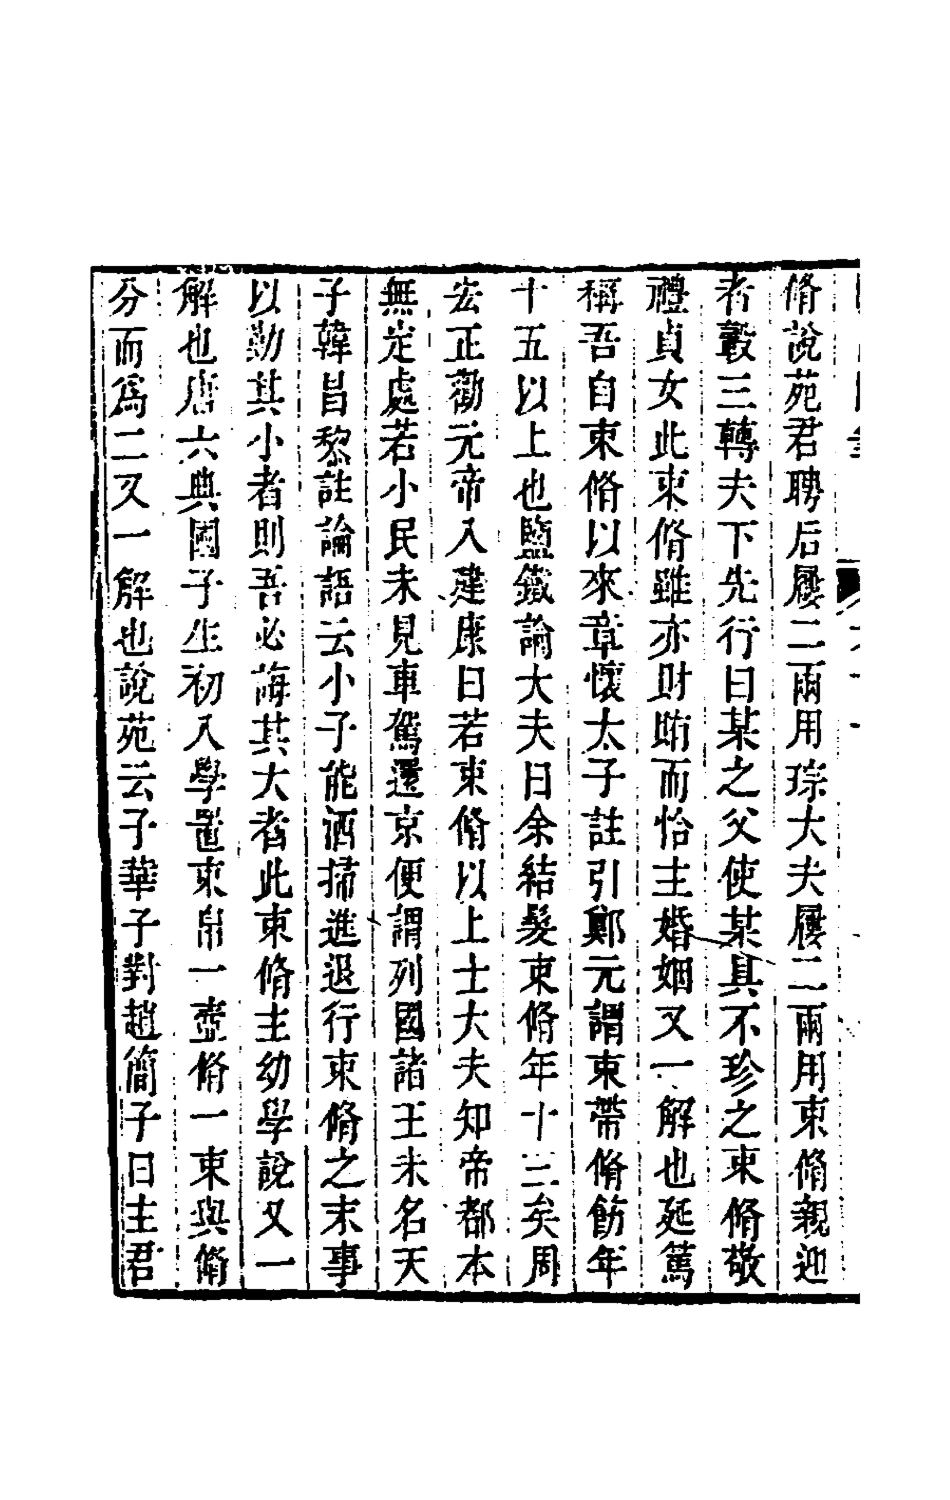 脩說苑君聘后屨二兩用琮大夫屨二兩用束脩親迎
者轂三轉夫下先行曰某之父使某具不珍之束脩敬
禮貞女此束脩雖亦財賄而怡主婚姻又一解也延篤
稱吾自束脩以來章懷太子註引鄭元謂束帶脩飭年
十五以上也鹽鐵論大夫曰余結髮束脩年十三矣周
宏正勸元帝入建康曰若束脩以上士大夫知帝都本
無定處若小民未見車駕還京便謂列國諸王未名天
子韓昌黎註論語云小子能洒掃進退行束脩之末事
以勤其小者則吾必誨其大者此束脩主幼學說又一
解也唐六典國子生初入學置束帛一壺脩一束與脩
分而爲二又一解也說苑云子華子對趙簡子曰主君